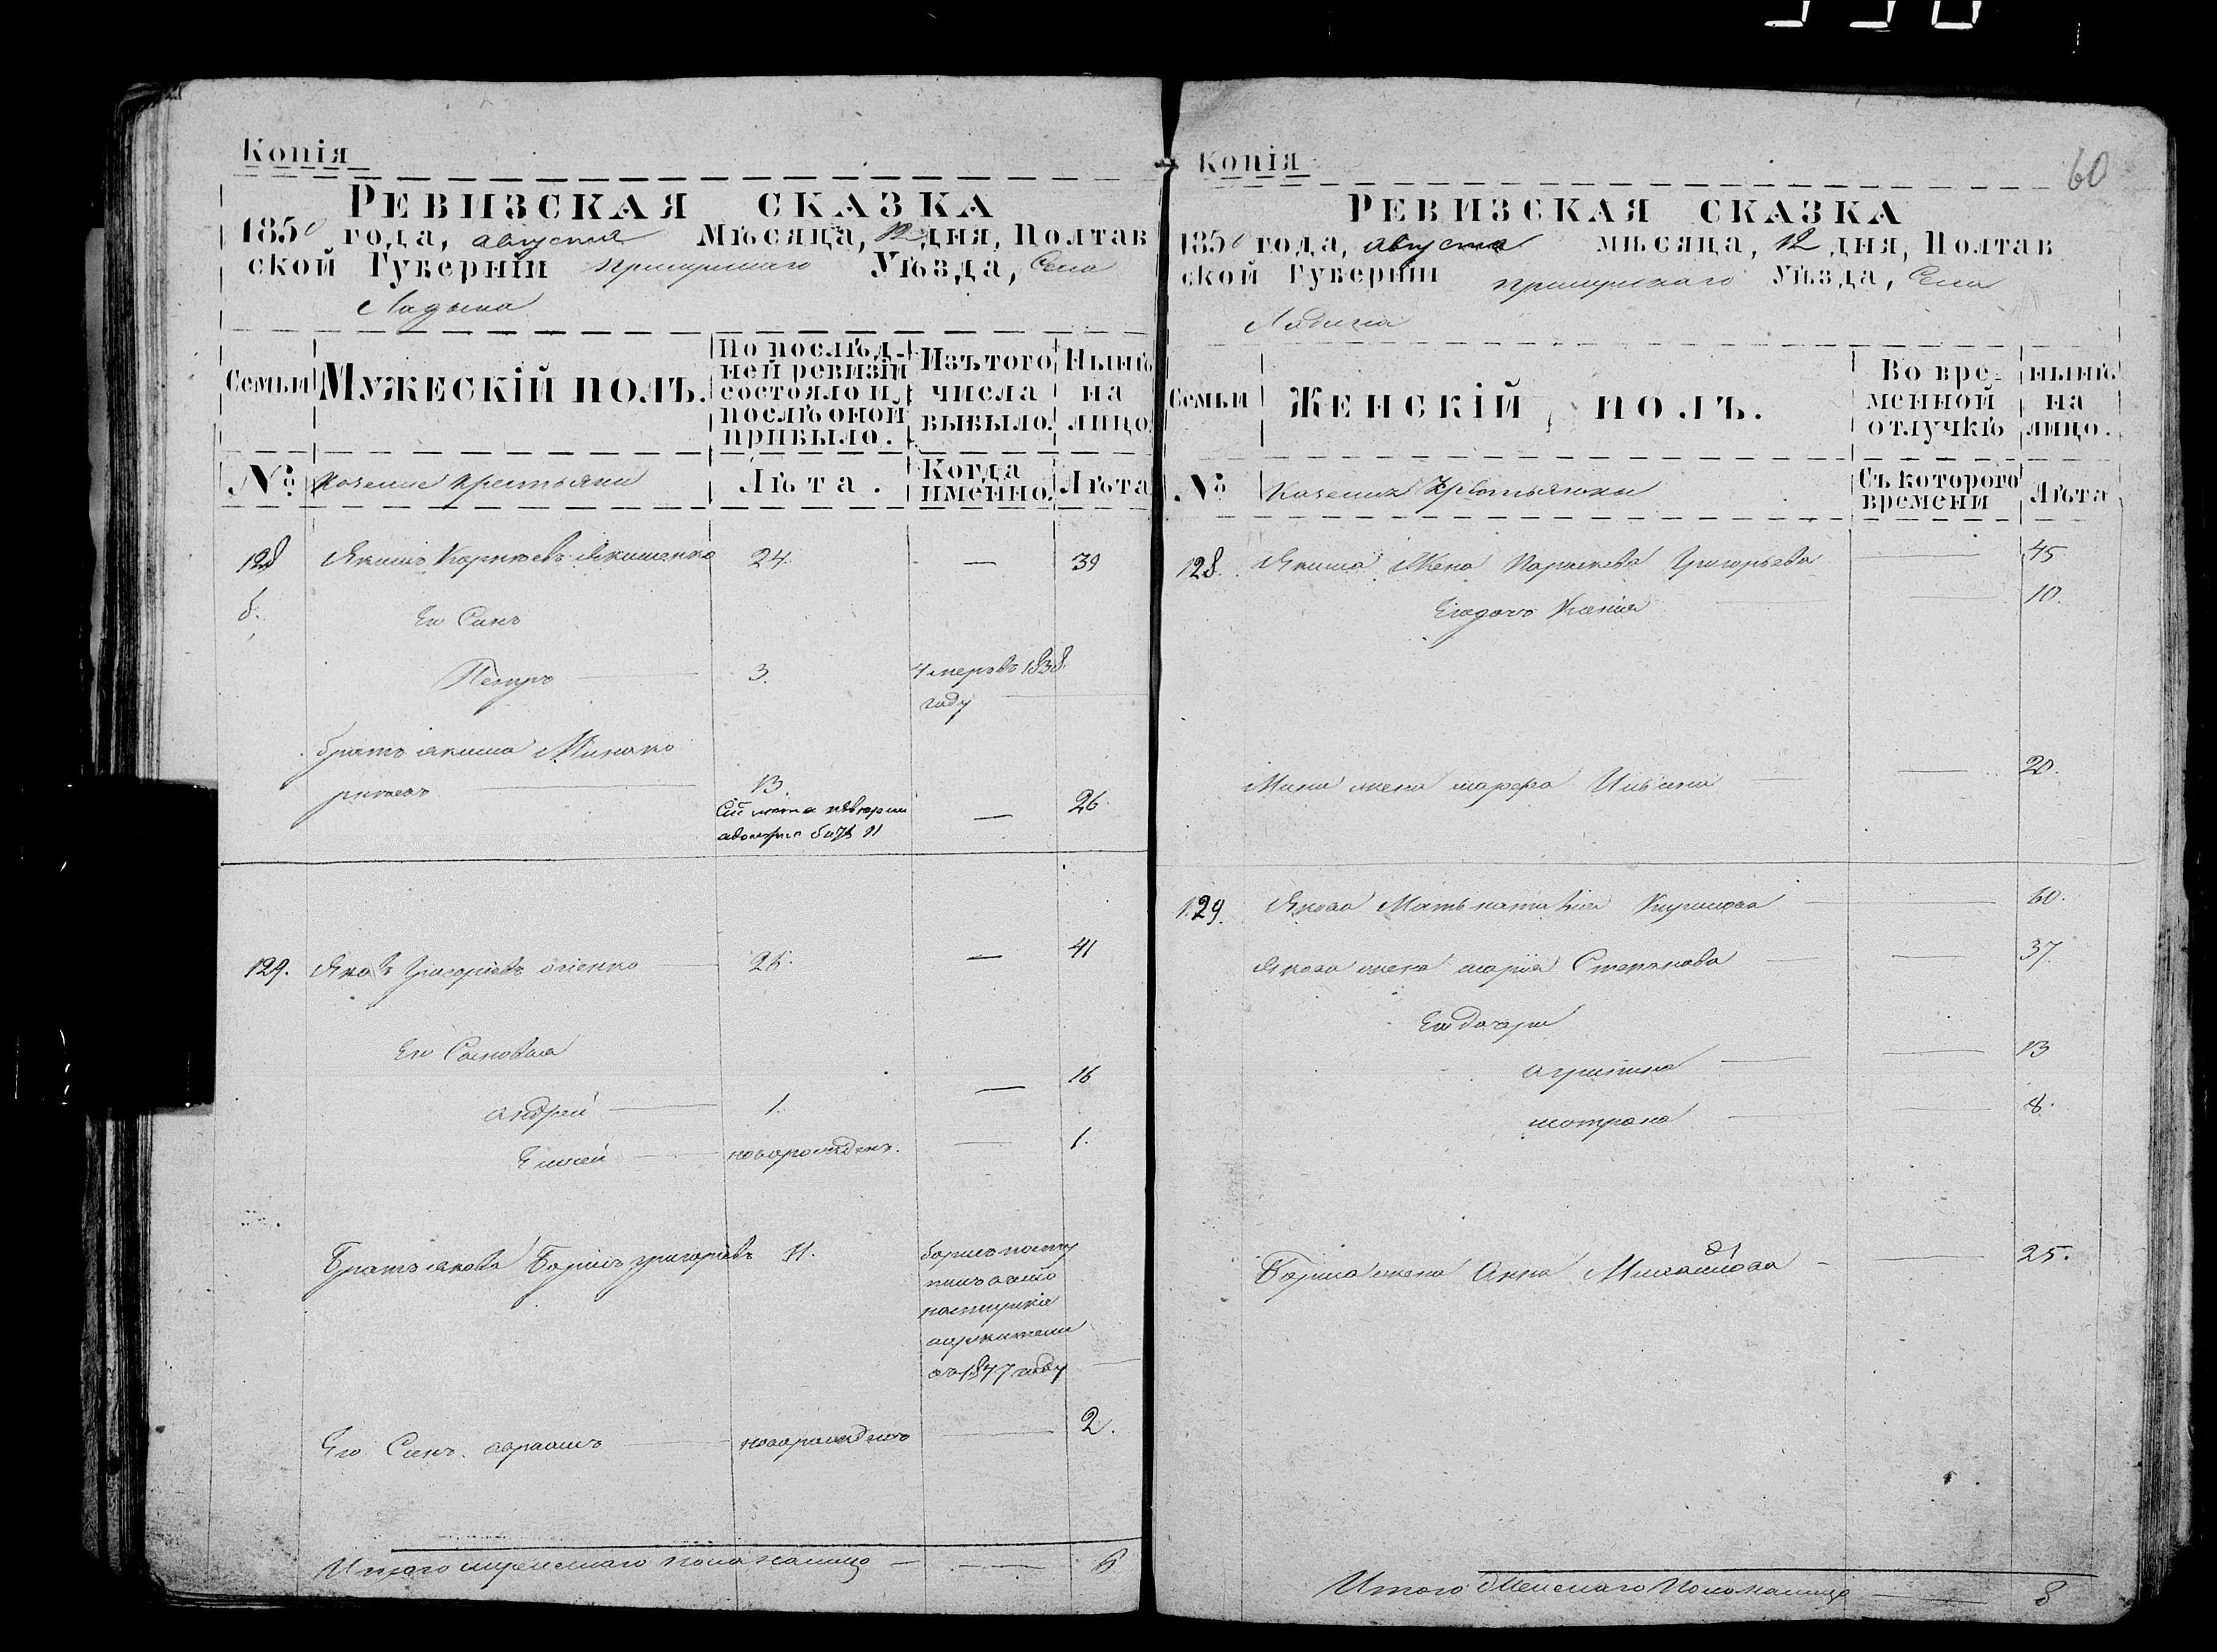 Копія
РЕВИЗСКАЯ СКАЗКА
1850 года, августа Мѣсяца, 12 дня, Полтав
ской Губерніи Прилуцкаго Уѣзда, Села
Ладына
Семьи
МУЖЕСКІЙ ПОЛЪ.
По послѣд-
ней ревизіи
состояло и
послѣ оной
прибыло.
Изъ того
числа
выбыло.
Нынѣ
на
лицо.
№
Казенные крестьяни
Лѣта.
Когда
именно.
Лѣта
128 Якимъ Якименко 24. — 39
Его Синъ
Петръ 3. Умеръ въ 1838.
году
братъ якима Мина
13.
Сій
11
— 26.
129. Яковъ Григоріевъ 26. — 41
Его Сыновья
андрей 1. — 16
Елисей новорожденъ. — 1.
Братъ якова Борисъ григоріевъ 11. борисъ посту
1847 году
Его Синъ. аврамъ новорожденъ — 2.
Итого мужескаго пола налицо — 6
Копія
60
РЕВИЗСКАЯ СКАЗКА
1850 года, августа мѣсяца, 12 дня, Полтав
ской Губерніи прилуцкаго Уѣзда, Села
Ладина
Семьи
ЖЕНСКІЙ ПОЛЪ.
Во вре-
менной
отлучкѣ
нынѣ
на
лицо.
№
Казенних Крестьянки
Съ котораго
времени
Лѣта
128. Якима Жена Параскева Григорьева — 45
Его дочь Ксенія — 10.
Мини жена марфа — 20.
129. Якова Мать наталія Кирилова — 60.
Якова жена марія Степанова — 37.
Его дочери
агрипина — 13
мотрона — 8.
Бориса жена Анна Михайлова — 25.
Итого Женскаго Пола налицо — 8